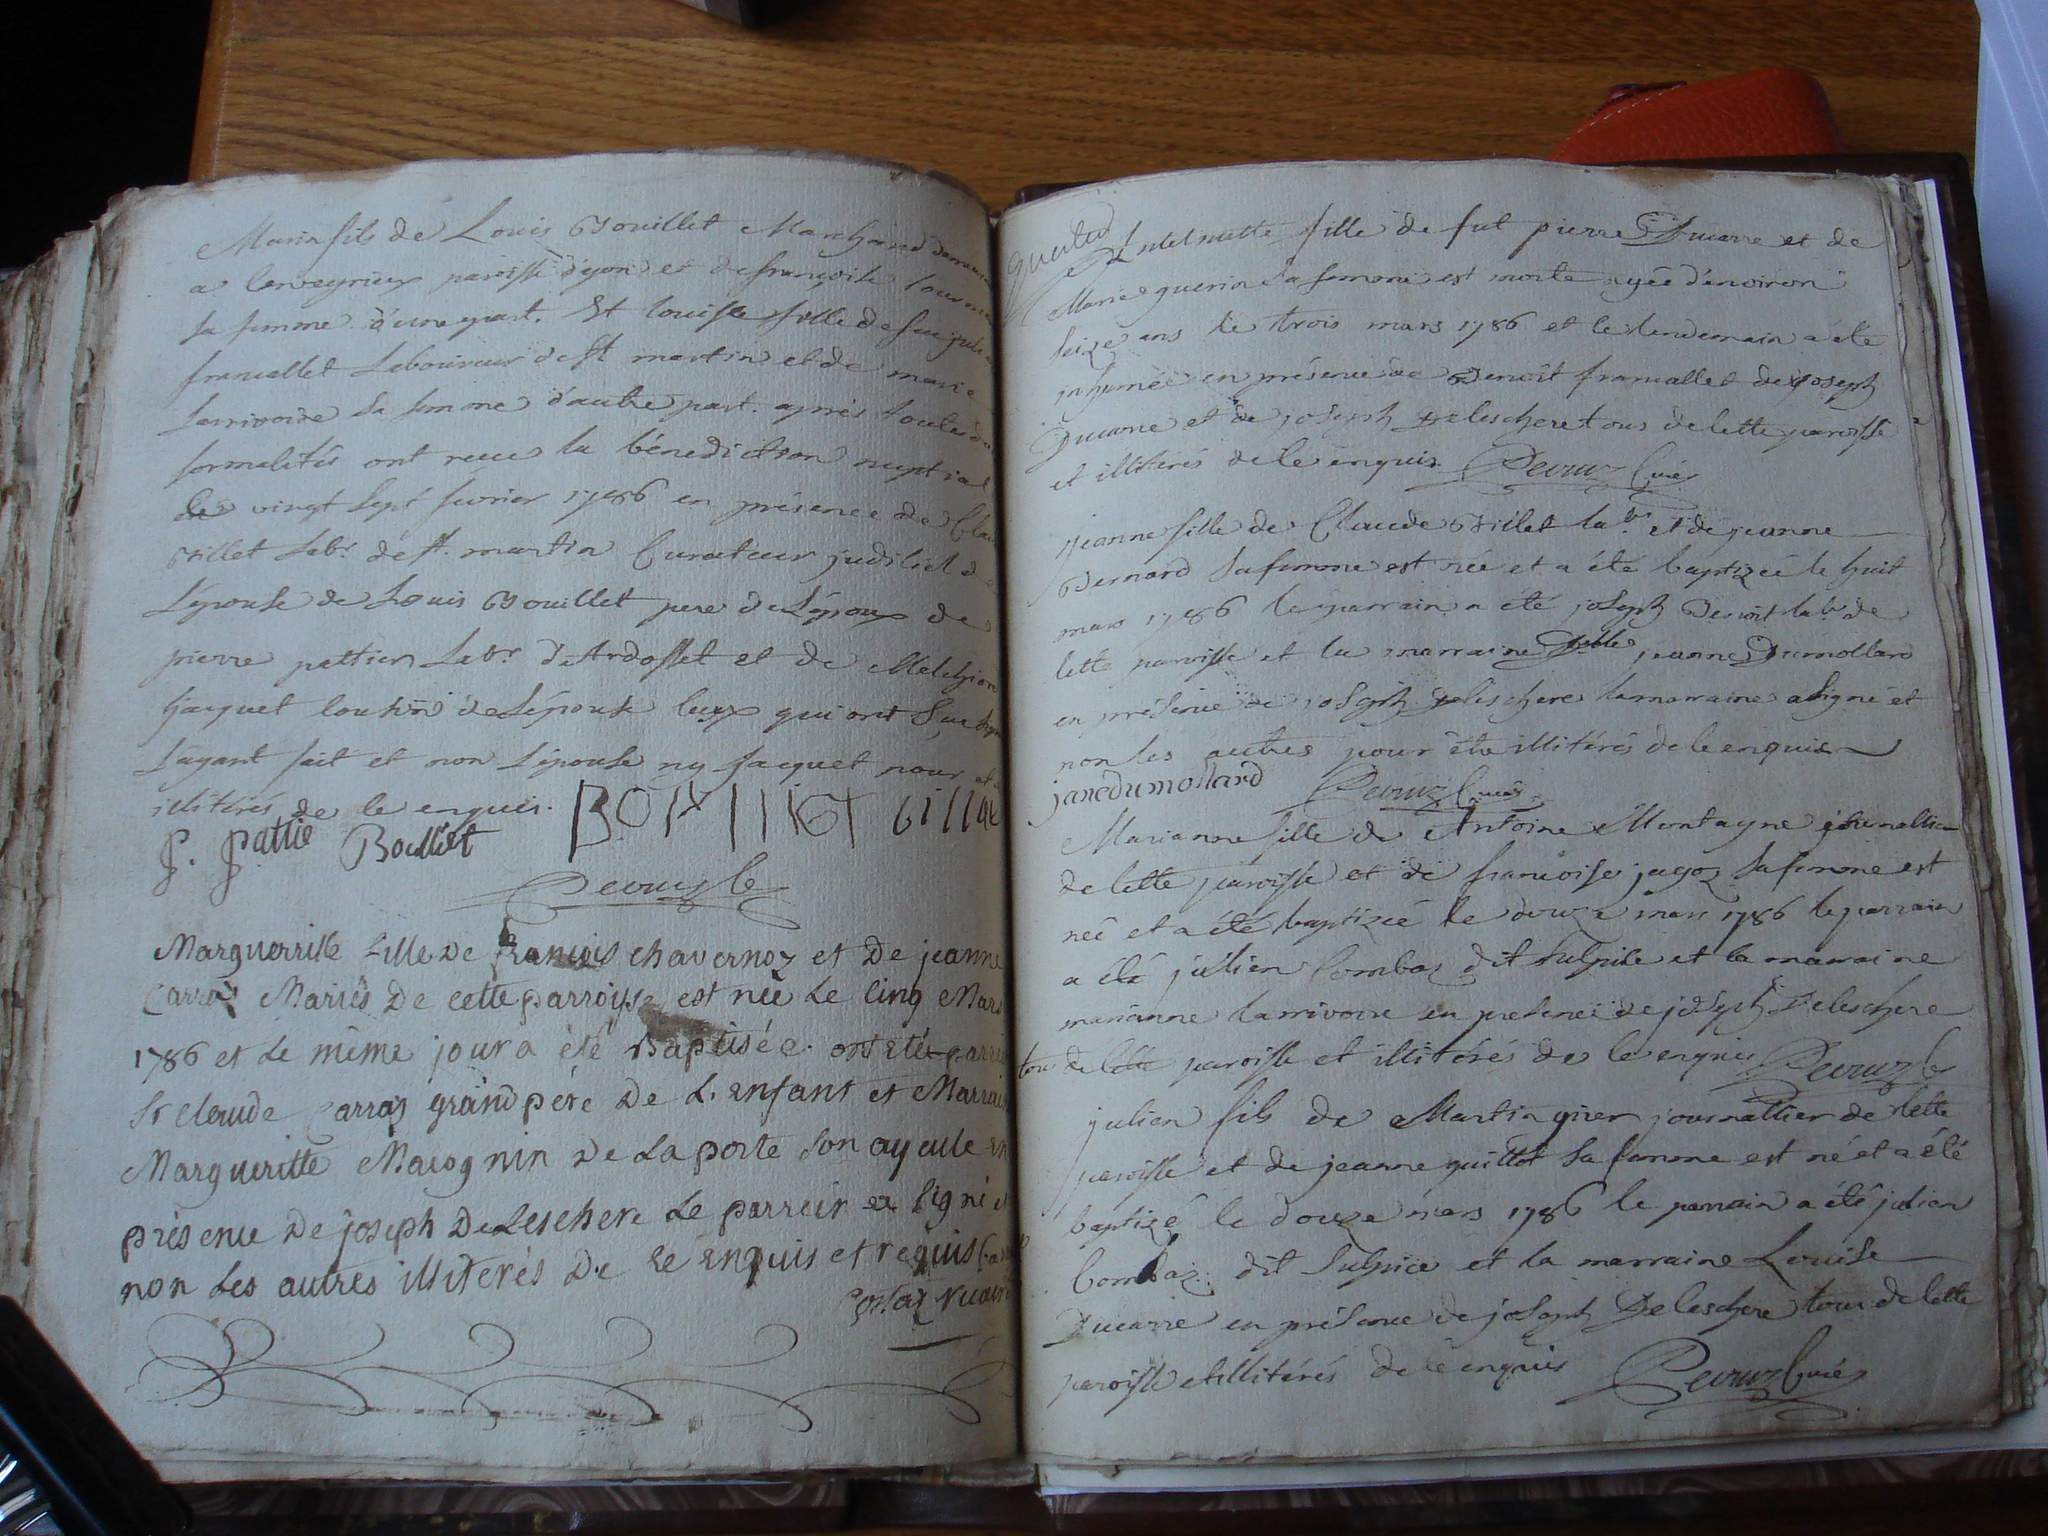 Marin fils de Louis Bouillet Marchand
a Cerveyrieu paroisse d'yon et de françoise
sa femme d'une part. Et louise fille de feu
francallet Laboureur de st martin et de marie
Larrivoire sa femme d'autre part. après toutes
formalités ont receu la bénédiction nuptial
le vingt sept fevrier 1786 en présence de
Billet Labr. de st. martin Curateur judiciel
L'épouse de Louis Bouillet pere de L'époux de
pierre pattier Labr D'Ardosset et de Melchior
jacquet cousin de L'épouse ceux qui ont Sçu
L'ayant fait et non L'épouse ny jacquet pour
illitérés de ce enquis.
P. Pattie Boulliet
Marguerritte fille De françois chavernoz et De jeanne
Carraz Mariés De cette parroisse est née Le cinq Mars
1786 et Le même jour a été Baptisée. ont été
Sr Claude Carraz grand pére De L'enfant et
Margueritte Macognin De La poste Son ayeule
présence De joseph DeLeschere Le parrein a signé
non Les autres illiterés De ce enquis et requis
jntelmette fille de fut pierre Ducarre et de
Marie guerin sa femme est morte agée d'environ
seize ans le trois mars 1786 et le lendemain a été
inhumée en présence de Benoit francallet de joseph
Ducarre et de joseph Deleschere tous de cette paroisse
et illitérés de ce enquis Curé
jeanne fille de Claude Billet labr. et de jeanne
Bernard sa femme est née et a été baptizée le huit
mars 1786 le parrain a été joseph Benoit labr de
cette paroisse et la marraine Delle jeanne Dumollard
en présence de joseph Deleschere la marraine a signé et
non les autres pour être illitérés de ce enquis
jane dumollard Curé
Marianne fille de Antoine Montagne journallier
de cette paroisse et de francoise jagoz sa femme est
née et a été baptizée le douze mars 1786 le parrain
a été julien Combaz dit Sulpice et la marraine
marianne larrivoire en presence de joseph Deleschere
tous de cette paroisse et illitérés de ce enquis
julien fils de Martin girer journallier de cette
paroisse et de jeanne guillot sa femme est né et a été
baptizé le douze mars 1786 le parrain a été julien
Combaz dit Sulpice et la marraine Louise
Ducarre en présence de joseph Deleschere tous de cette
paroisse et illitérés de ce enquis Curé